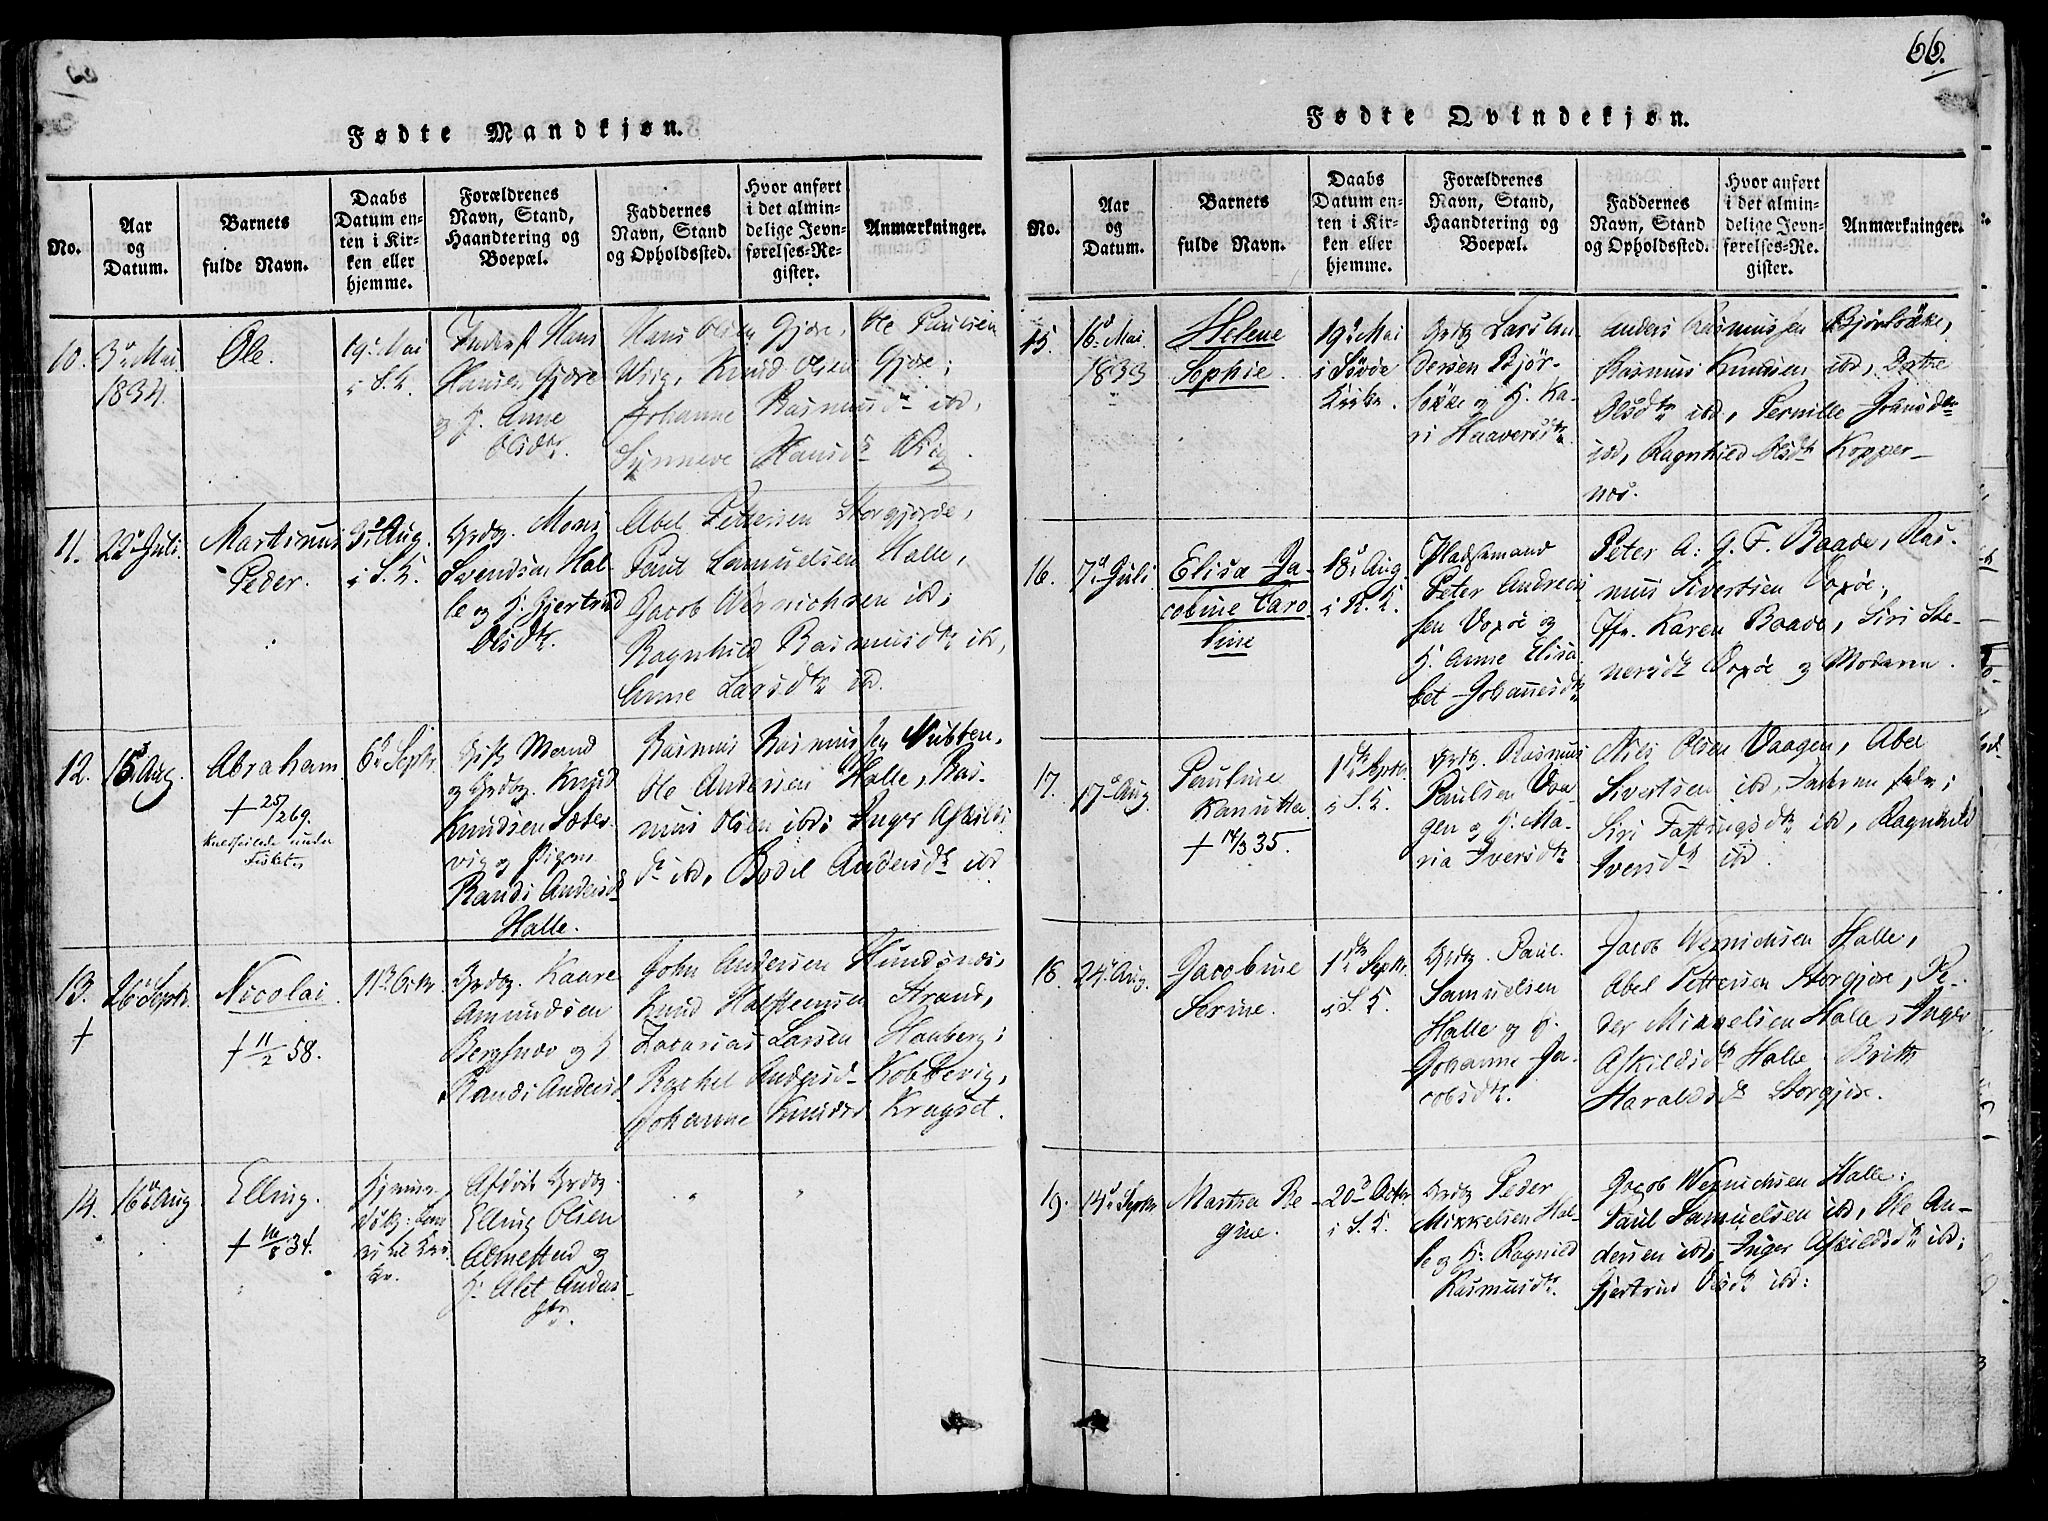 66.
Fødte Mandkjøn.
No.
Aar
og
Datum.
Barnets
fulde Navn.
Daabs
Datum en-
ten i Kir-
ken eller
hjemme.
Forældrenes
Navn, Stand,
Haandtering og
Boepæl.
Faddernes
Navn, Stand
og Opholdssted.
Hvor anført
i det almin-
delige Jevn-
førelses-Re-
gister.
Anmærkninger.
10.
3d Mai
1834.
Ole.
19d Mai
i S. K.
Hans
Hansen Gjære
og H. Anne
Olsdtr.
Hans Olsen Gjære, Ole Paulsen
Wiig, Knud Olsen Gjære;
Johanne Rasmusdr ibd,
Synneve Hansdr Wiig.
11.
22d Juli.
Martinus
Peder.
3d Aug.
i S. K.
Grdbg. Mons
Svendsen Hal-
le og H. Gjertrud
Olsdtr.
Abel Pettersen Storgjære,
Paul Samuelsen Halle,
Jacob Wernichsen ibd;
Ragnhild Rasmusdtr ib,
Anne Larsdtr ibd.
12.
15d Aug.
Abraham
+ 25/2 69.
6d Septr.
Gift Mand
og Grdbg. Knud
Knudsen Sæter-
vig og Pigen
Randi Andersd
Halle.
Rasmus Rasmussen Nubben,
Ole Andersen Halle, Ras-
mus Olsen ibd; Inger Askilds-
dr ibd, Bodil Andersdr ibd
13.
+
26d Septr.
Nicolai
+ 11/2 58.
11d Octr
Grdbg. Kaare
Amundsen
Bergsnæs og H
Randi Andersd
John Andersen Hundsnæs,
Knud Halsteensen Strand,
Zacarias Larsen Hauberg;
Rachel Andersd Kobbevig,
Johanne Knudsd Kragset.
14.
16d Aug
Elling.
+ 16/8 34.
Afdöde Grdbg.
Elling Olsen
Almestad og
H. Alet Anders-
dtr.
Fødte Qvindekjøn.
No.
Aar
og
Datum.
Barnets
fulde Navn.
Daabs
Datum en-
ten i Kir-
ken eller
hjemme.
Forældrenes
Navn, Stand,
Haandtering og
Boepæl.
Faddernes
Navn, Stand
og Opholdssted.
Hvor anført
i det almin-
delige Jevn-
førelses-Re-
gister.
Anmærkninger.
15.
16d Mai
1833
Helene
Sophie.
19d Mai
i Søvde
Kirke.
Grdbg Lars An-
dersen Bjør-
løkke og H. Ka-
ri Haaversdtr.
Anders Rasmussen Bjørløkke,
Rasmus Knudsen ibd,
Olsdtr ibd, Pernille Johnsdtr
ibd, Ragnhild Olsdtr Kopper-
næs.
16.
7d Juli
Elisa Ja-
cobine Caro-
line
18d Aug
i R. K.
Pladsemand
Peter Andreas-
sen Voxøe og
H. Anne Elisa-
bet Johannesdtr
Peter A. G. F. Baade, Ras-
mus Sivertsen Voxøe;
Jfr. Karen Baade, Siri Ste-
nersdtr Voxøe og Moderen.
17.
17d Aug.
Pauline
Kanutta
+ 14/3 35.
1ste Septr.
i S. K.
Grdbg. Rasmus
Paulsen Vaa-
gen og H. Ma-
ria Iversdtr
Nils Olsen Vaagen, Abel
Sivertsen ibd, Faderen selv;
Siri Fastingsdtr ibd, Ragnhild
Iversdtr ibd.
18.
24d Aug.
Jacobine
Serine.
1ste Septr.
i S. K.
Grdbg. Paul
Samuelsen
Halle og H.
Johanne Ja-
cobsdtr.
Jacob Wernichsen Halle,
Abel Pettersen Storgjære, Pe-
der Mikkelsen Halle, Inger
Askildsdtr Halle. Brithe
Haraldsdtr Storgjære.
19.
14d Septr
Martha Re-
gine.
20d Octr
i S. K.
Grdbg Peder
Mikkelsen Hal-
le og H. Ragnild
Rasmusdtr.
Jacob Wernichsen Halle;
Paul Samuelsen ibd, Ole An-
dersen ibd; Inger Askildsdtr ibd;
Gjertrud Olsdtr ibd: